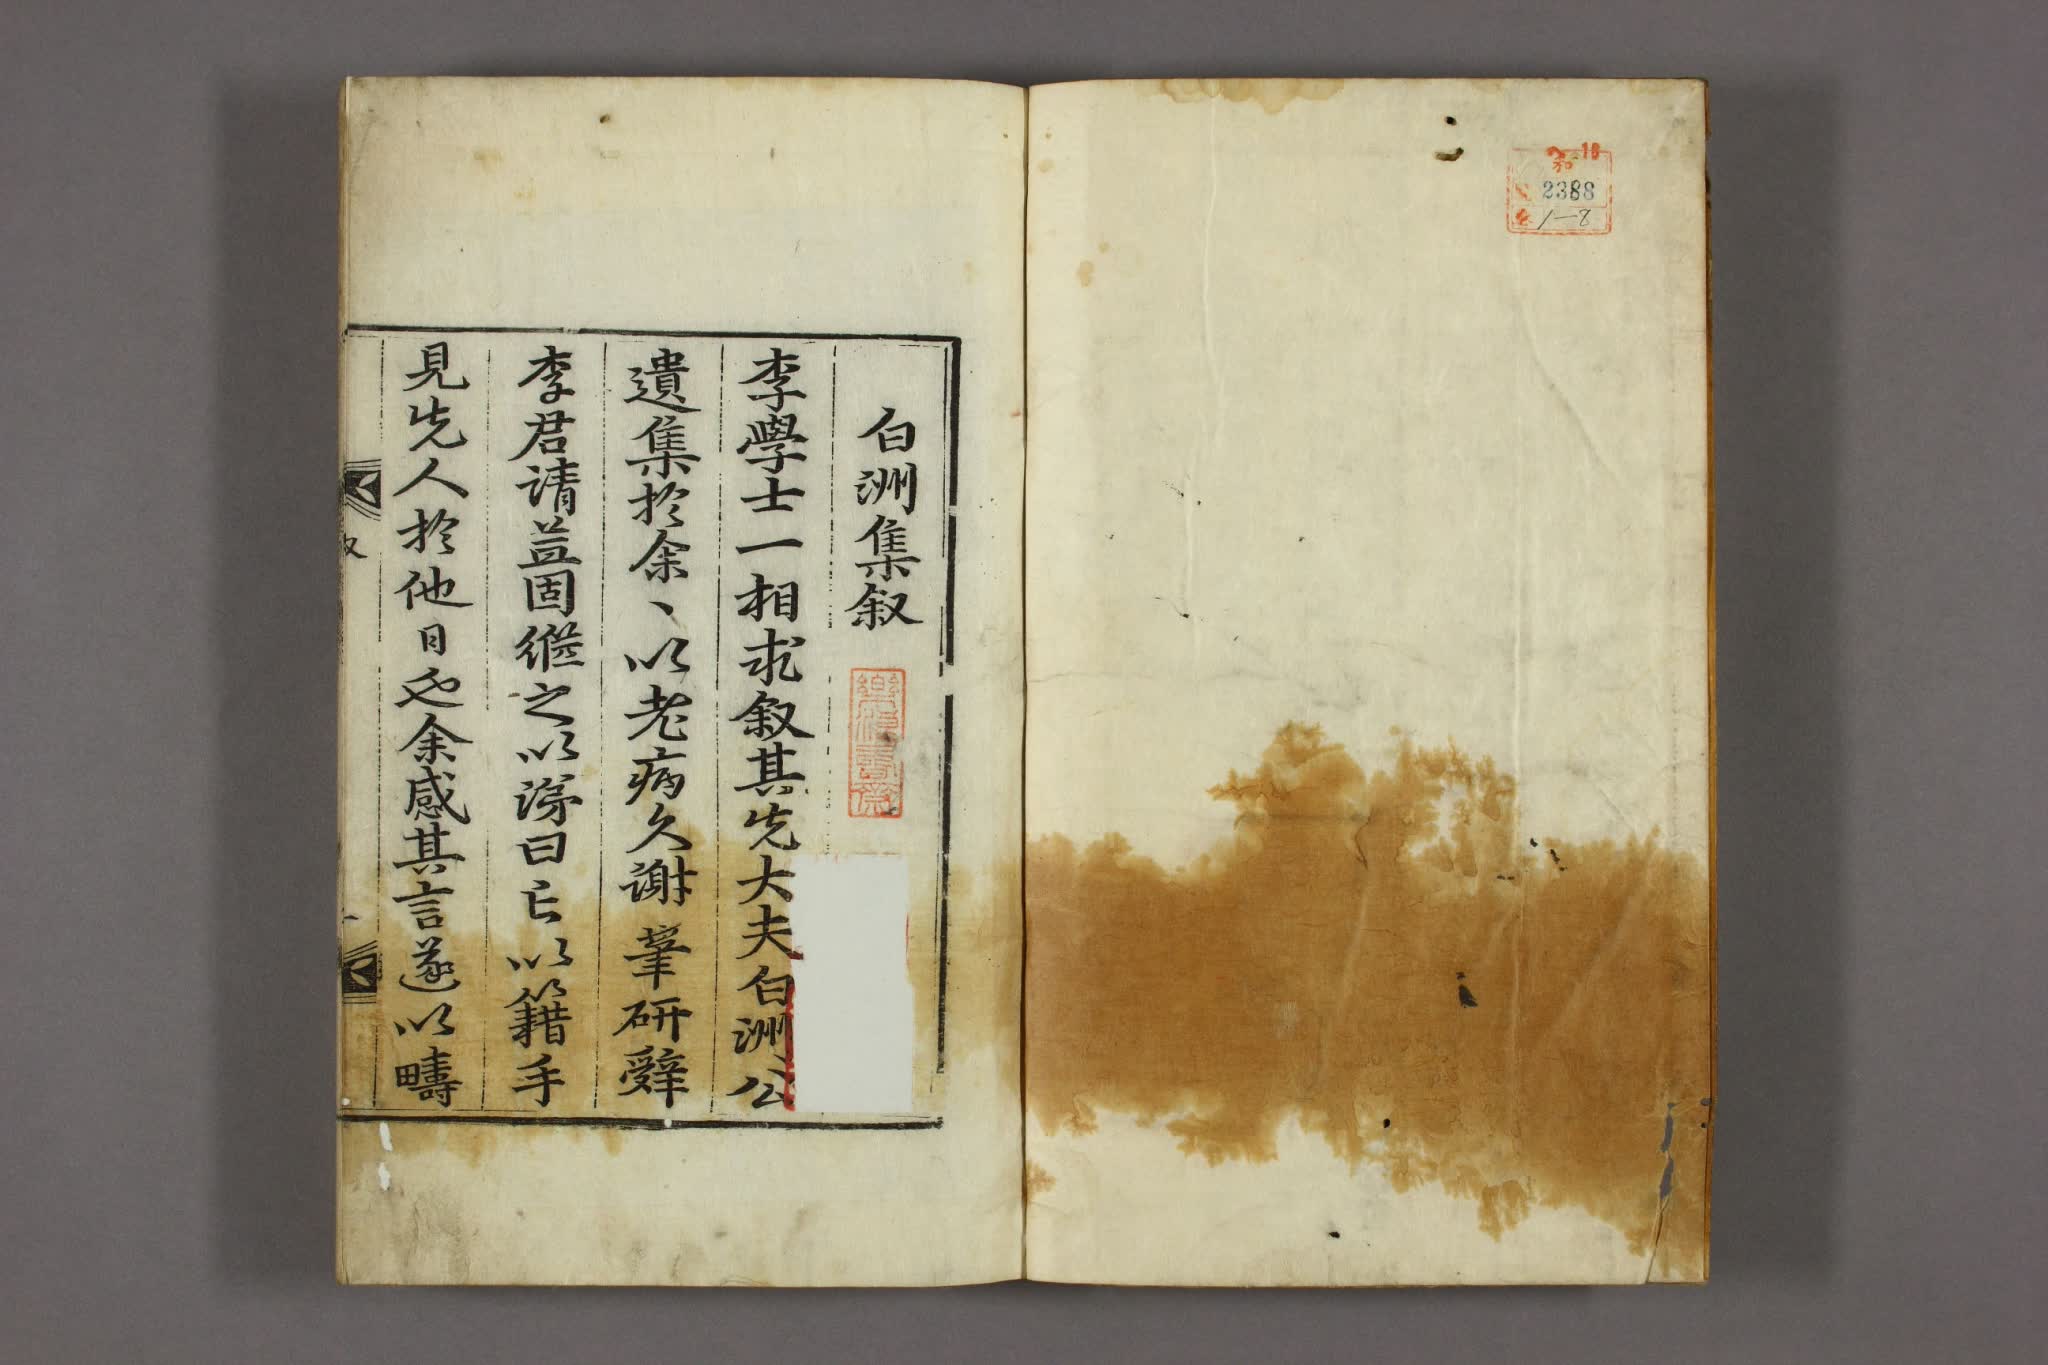 和
2388
1-8
白洲集叙
李學士一相求叙其先大夫白洲公
遺集於余〻以老病久謝筆研辭
李君請益固繼之以涕曰亡以籍手
見先人於他日也余感其言遂以疇
叙